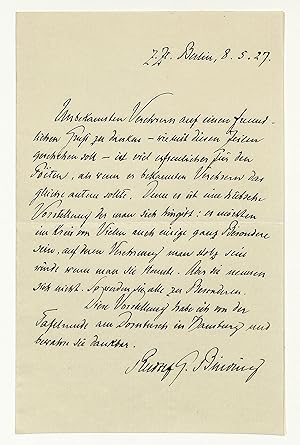 z. Zt. Berlin, 8.5.27.
Unbekannten Verehrern auf einen freund-
lichen Gruß zu danken – wie mit diesen Zeilen
geschehen soll – ist viel erfreulicher für den
Dichter, als wenn er bekannten Verehrern das
gleiche antun sollte. Denn es ist eine hübsche
Vorstellung der man sich hingibt: es möchten
im Kreis von Vielen auch einige ganz Besondere
sein, auf deren Verehrung man stolz sein
würde wenn man sie kennte. Aber sie nennen
sich nicht. So werden sie alle zu Besonderen.
Diese Vorstellung habe ich von der
Tafelrunde am in Hamburg und
bewahre sie dankbar.
Rudolf G. Binding